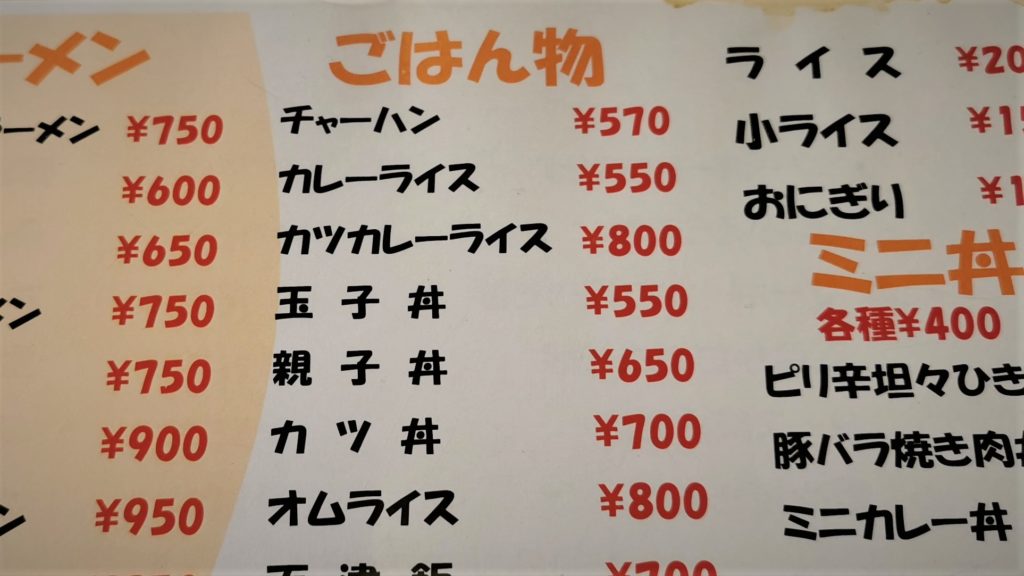 ーメン
ラーメン ¥750
¥600
¥650
¥750
¥750
¥900
¥950
ごはん物
チャーハン ¥570
カレーライス ¥550
カツカレーライス ¥800
玉子丼 ¥550
親子丼 ¥650
カツ丼 ¥700
オムライス ¥800
天津飯 ¥700
ライス
小ライス
おにぎり
ミニ丼
各種¥400
ピリ辛坦々ひき
豚バラ焼き肉丼
ミニカレー丼